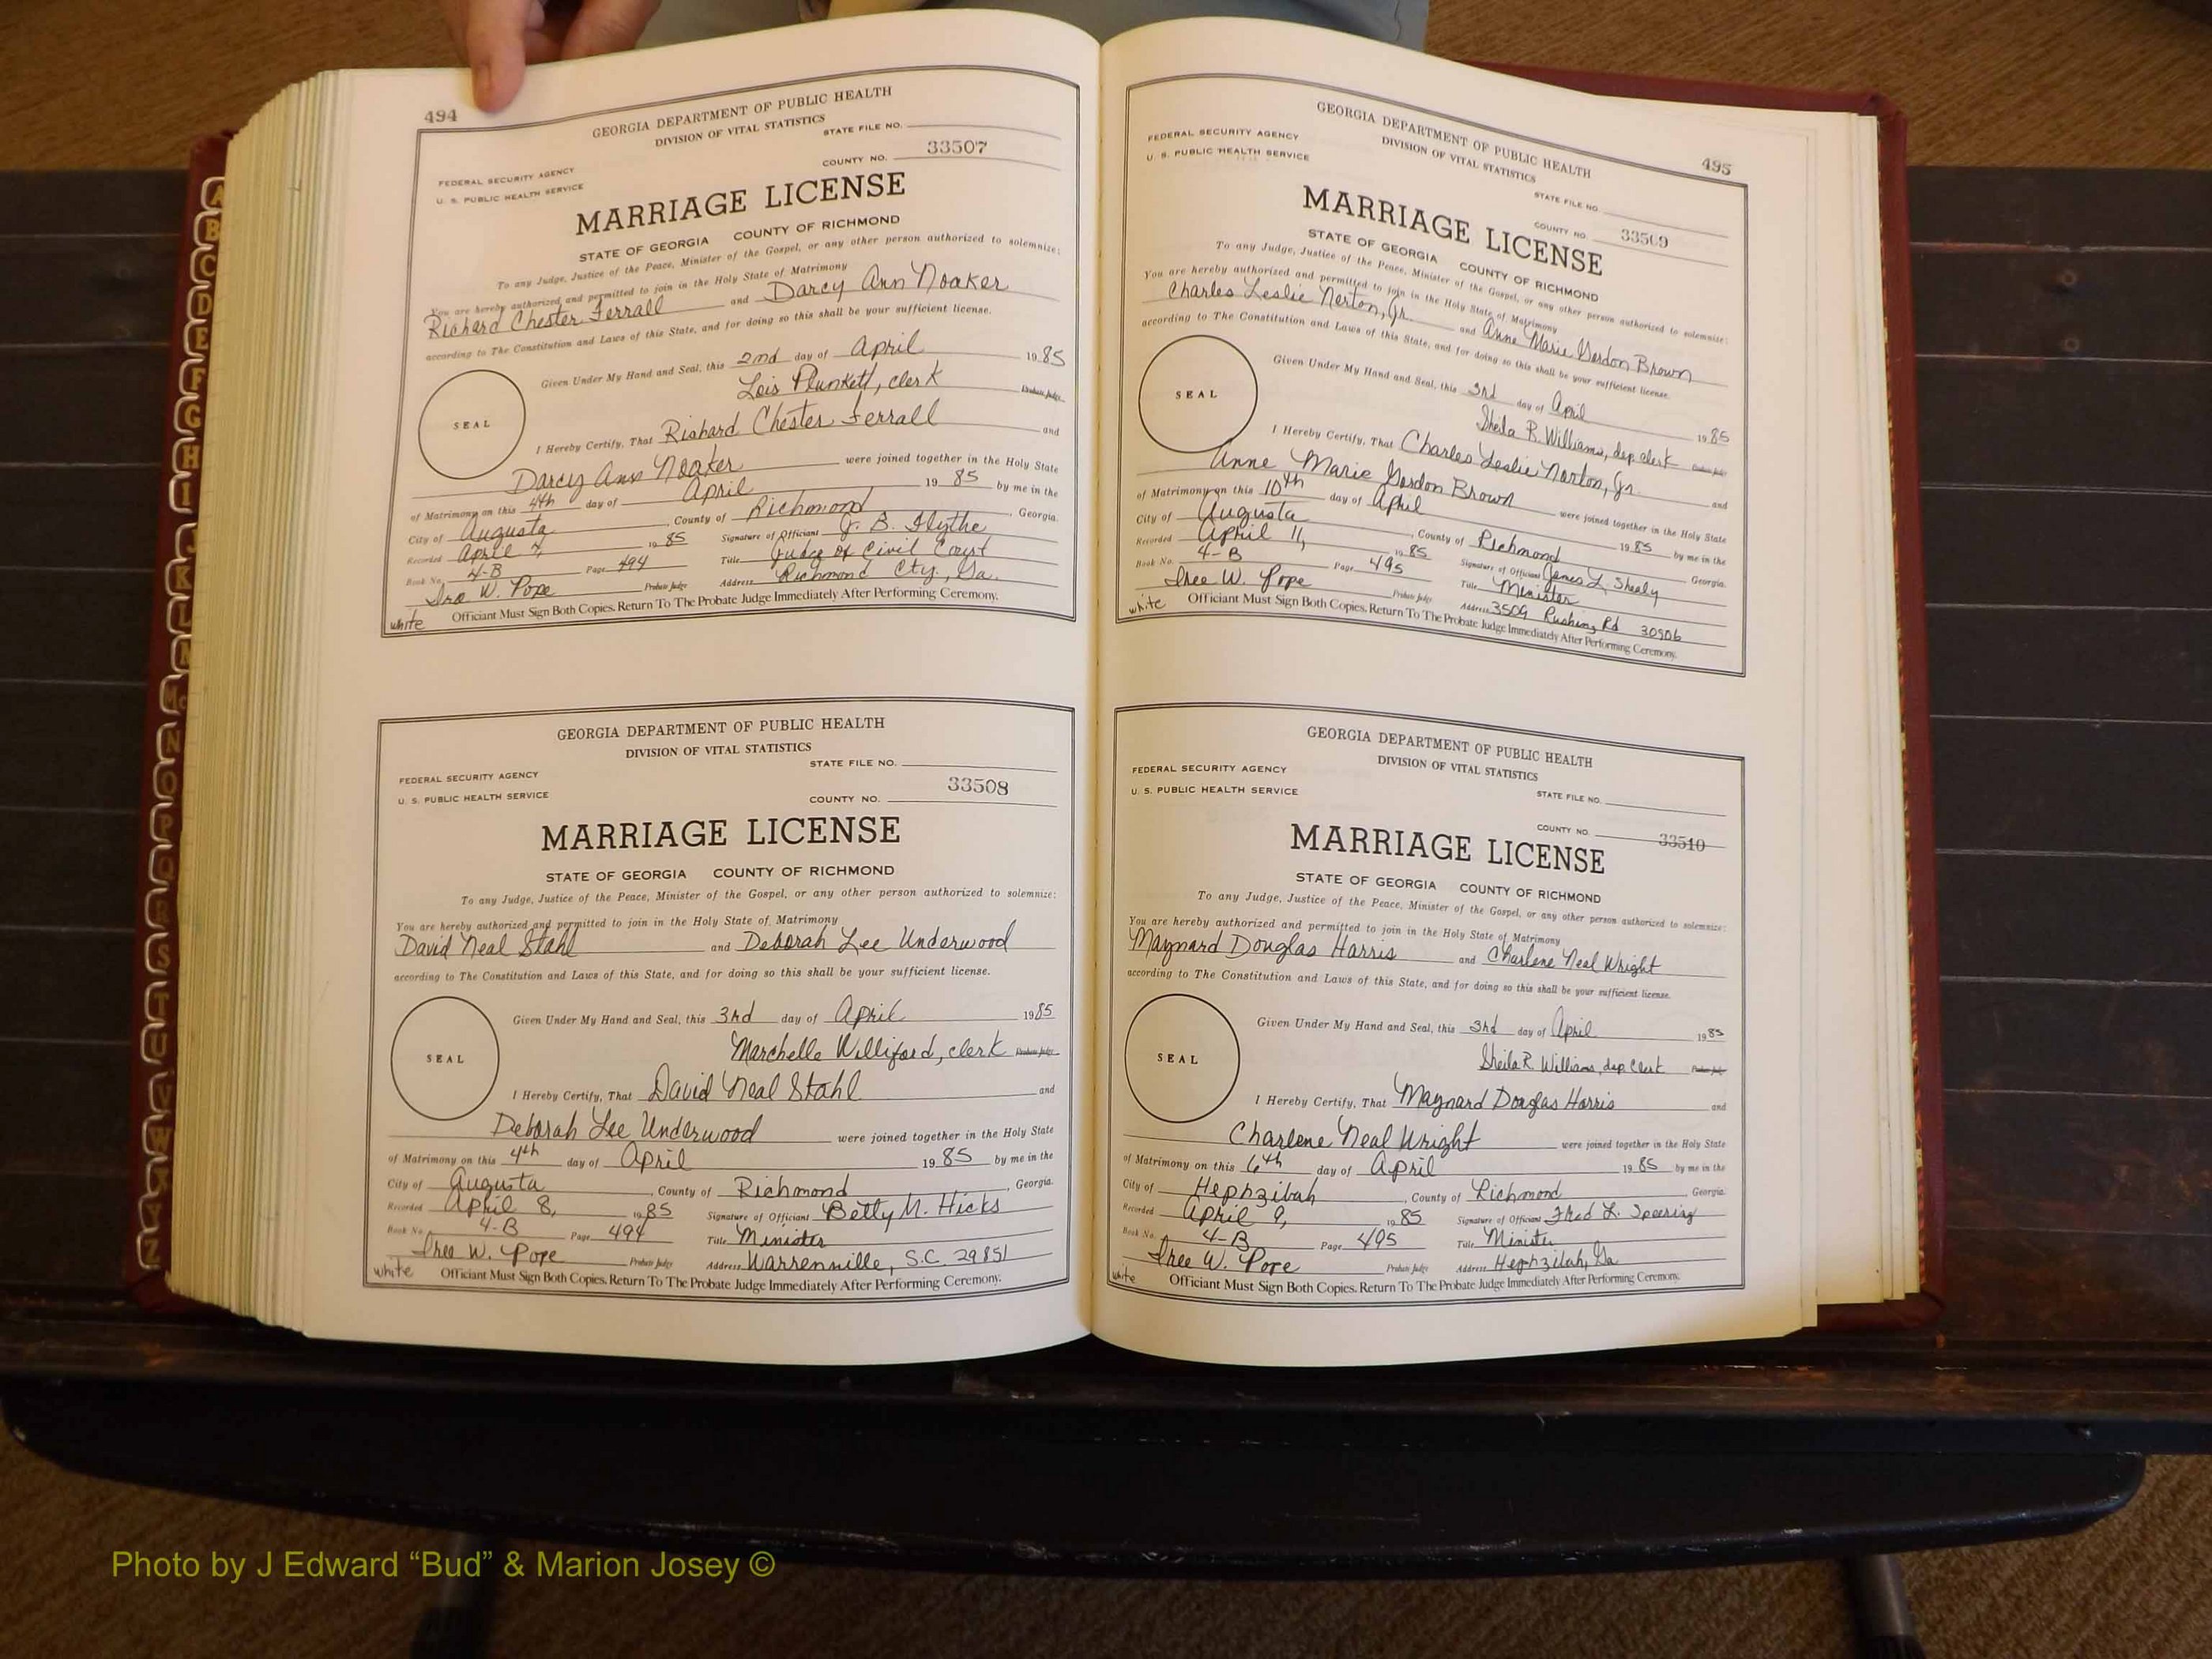 494
GEORGIA DEPARTMENT OF PUBLIC HEALTH
DIVISION OF VITAL STATISTICS
STATE FILE NO.
FEDERAL SECURITY AGENCY
COUNTY NO. 33507
U. S. PUBLIC HEALTH SERVICE
MARRIAGE LICENSE
STATE OF GEORGIA COUNTY OF RICHMOND
To any Judge, Justice of the Peace, Minister of the Gospel, or any other person authorized to solemnize:
You are hereby authorized and permitted to join in the Holy State of Matrimony
Richard Chester Ferrall and Darcy Ann Noaker
according to The Constitution and Laws of this State, and for doing so this shall be your sufficient license.
Given Under My Hand and Seal, this 2nd day of April 1985
Lois Plunkett, clerk Probate Judge
SEAL
I Hereby Certify, That Richard Chester Ferrall and
Darcy Ann Noaker were joined together in the Holy State
of Matrimony on this 4th day of April 1985 by me in the
City of Augusta, County of Richmond, Georgia.
Recorded April 1985 Signature of Official J. B. Flythe
Book No. 4-B Page 494 Title Judge of Civil Court
W. Pope Probate Judge Address Richmond Cty., Ga.
white Officiant Must Sign Both Copies. Return To The Probate Judge Immediately After Performing Ceremony.
GEORGIA DEPARTMENT OF PUBLIC HEALTH
DIVISION OF VITAL STATISTICS
STATE FILE NO.
FEDERAL SECURITY AGENCY
33508
U. S. PUBLIC HEALTH SERVICE COUNTY NO.
MARRIAGE LICENSE
STATE OF GEORGIA COUNTY OF RICHMOND
To any Judge, Justice of the Peace, Minister of the Gospel, or any other person authorized to solemnize:
You are hereby authorized and permitted to join in the Holy State of Matrimony
David Neal Stahl and Deborah Lee Underwood
according to The Constitution and Laws of this State, and for doing so this shall be your sufficient license.
Given Under My Hand and Seal, this 3rd day of April 1985
Marchelle Williford, clerk Probate Judge
SEAL
I Hereby Certify, That David Neal Stahl and
Deborah Lee Underwood were joined together in the Holy State
of Matrimony on this 4th day of April 1985 by me in the
City of Augusta, County of Richmond, Georgia.
Recorded April 8, 1985 Signature of Official Betty M. Hicks
Book No. 4-B Page 494 Title Minister
W. Pope Probate Judge Address Warrenville, S.C. 29851
white Officiant Must Sign Both Copies. Return To The Probate Judge Immediately After Performing Ceremony.
495
GEORGIA DEPARTMENT OF PUBLIC HEALTH
FEDERAL SECURITY AGENCY
DIVISION OF VITAL STATISTICS
U. S. PUBLIC HEALTH SERVICE
STATE FILE NO.
COUNTY NO. 33509
MARRIAGE LICENSE
STATE OF GEORGIA COUNTY OF RICHMOND
To any Judge, Justice of the Peace, Minister of the Gospel, or any other person authorized to solemnize:
You are hereby authorized and permitted to join in the Holy State of Matrimony
Charles Leslie Norton, Jr. and Anne Marie Gordon Brown
according to The Constitution and Laws of this State, and for doing so this shall be your sufficient license.
Given Under My Hand and Seal, this 3rd day of April 1985
Sheila R. Williams, dep clerk Probate Judge
SEAL
I Hereby Certify, That Charles Leslie Norton, Jr. and
Anne Marie Gordon Brown were joined together in the Holy State
of Matrimony on this 10th day of April 1985 by me in the
City of Augusta, County of Richmond Georgia.
Recorded April 11, 1985 Signature of Official James L. Sheely
Book No. 4-B Page 495 Title Minister
W. Pope Probate Judge Address 3509 Rushing Rd 30906
white Officiant Must Sign Both Copies. Return To The Probate Judge Immediately After Performing Ceremony.
GEORGIA DEPARTMENT OF PUBLIC HEALTH
FEDERAL SECURITY AGENCY
DIVISION OF VITAL STATISTICS
U. S. PUBLIC HEALTH SERVICE
STATE FILE NO.
COUNTY NO. 33510
MARRIAGE LICENSE
STATE OF GEORGIA COUNTY OF RICHMOND
To any Judge, Justice of the Peace, Minister of the Gospel, or any other person authorized to solemnize:
You are hereby authorized and permitted to join in the Holy State of Matrimony
Maynard Douglas Harris and Charlene Neal Wright
according to The Constitution and Laws of this State, and for doing so this shall be your sufficient license.
Given Under My Hand and Seal, this 3rd day of April 1985
Sheila R. Williams, dep Clerk Probate Judge
SEAL
I Hereby Certify, That Maynard Douglas Harris and
Charlene Neal Wright were joined together in the Holy State
of Matrimony on this 6th day of April 1985 by me in the
City of Hephzibah, County of Richmond, Georgia.
Recorded April 9, 1985 Signature of Official L.
Book No. 4-B Page 495 Title Minister
W. Pope Probate Judge Address Hephzibah, Ga
white Officiant Must Sign Both Copies. Return To The Probate Judge Immediately After Performing Ceremony.
Photo by J Edward “Bud” & Marion Josey ©